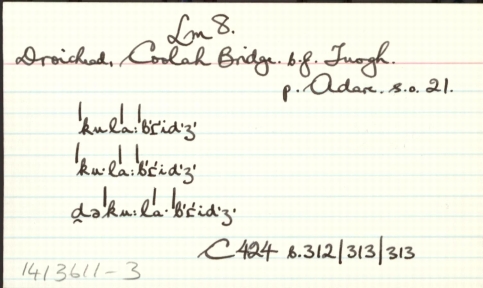 Lm 8.
Droichead, Coolah Bridge. b.f. Tuogh.
p. Adare. s.o. 21.
ˈkuˈlaːˈbʹrʹidʹʒʹ
ˈku·ˈlaːˈbʹrʹidʹʒʹ
d̪əˈkuːˈla·ˈbʹrʹidʹʒʹ
C424 s.312/313/313
1413611-3